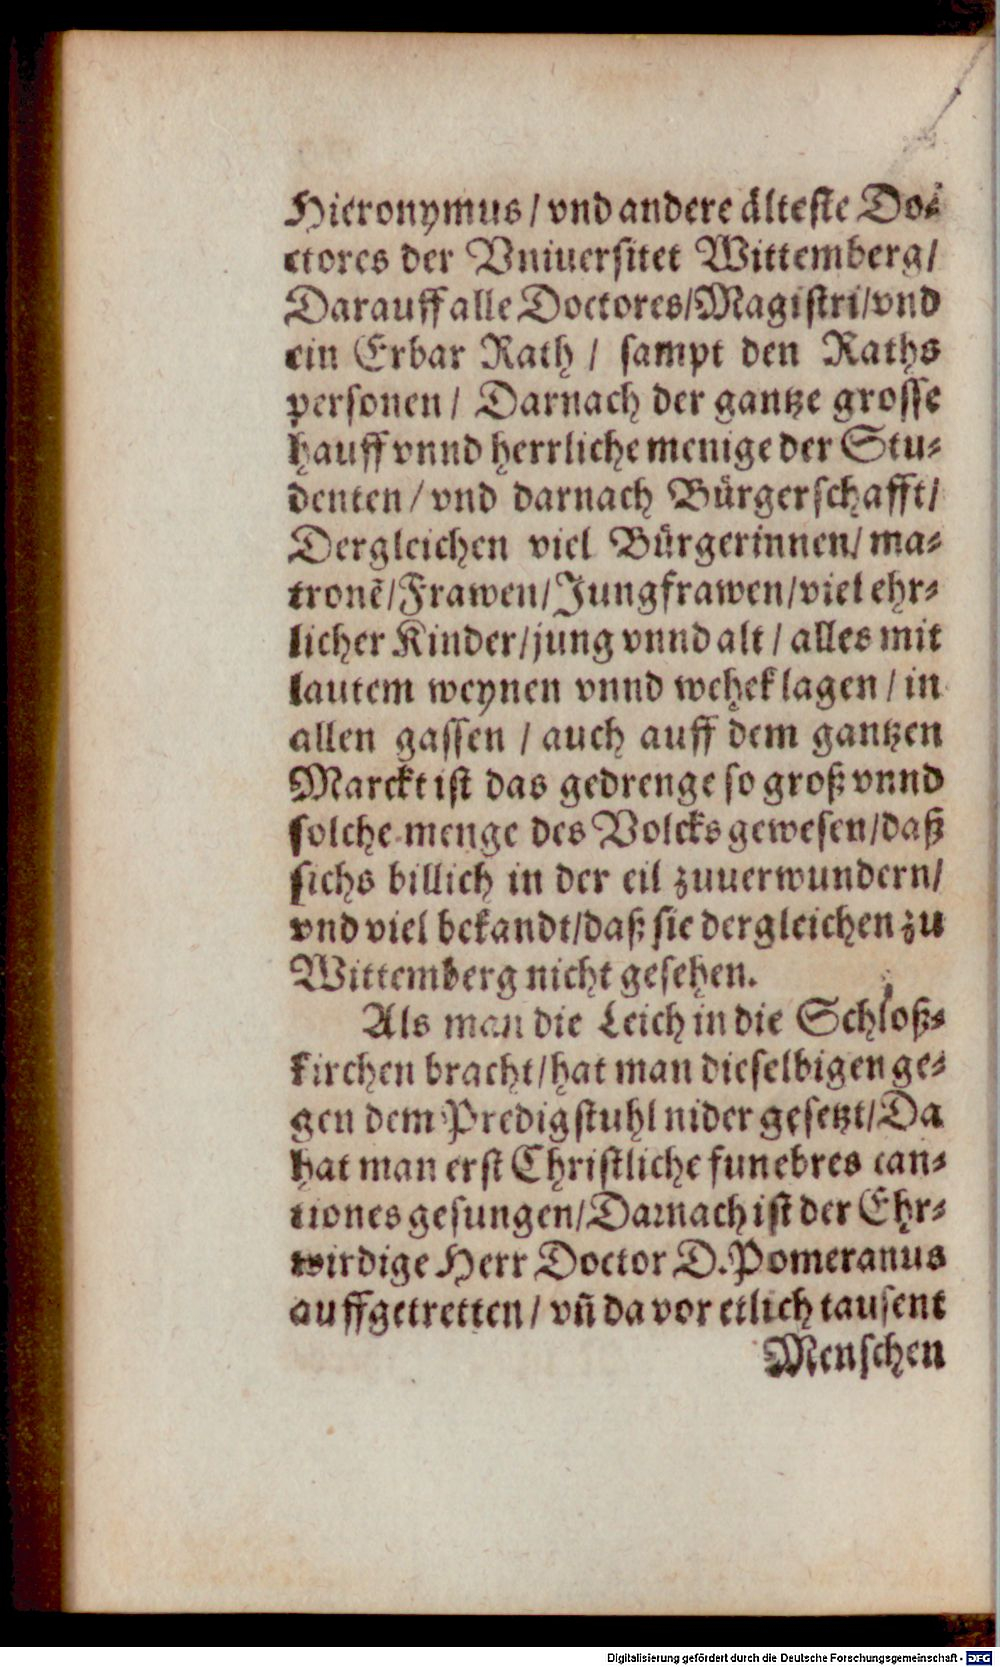 Hieronymus / vnd andere älteste Do-
ctores der Vniuersitet Wittemberg /
Darauff alle Doctores / Magistri / vnd
ein Erbar Rath / sampt den Raths
personen / Darnach der gantze grosse
hauff vnnd herrliche menige der Stu-
denten / vnd darnach Bürgerschafft /
Dergleichen viel Bürgerinnen / ma-
tronẽ / Frawen / Jungfrawen / viel ehr-
licher Kinder / jung vnnd alt / alles mit
lautem weynen vnnd weheklagen / in
allen gassen / auch auff dem gantzen
Marckt ist das gedrenge so groß vnnd
solche menge des Volcks gewesen / daß
sichs billich in der eil zuuerwundern /
vnd viel bekandt / daß sie dergleichen zu
Wittemberg nicht gesehen.
Als man die Leich in die Schloß-
kirchen bracht / hat man dieselbigen ge-
gen dem Predigstuhl nider gesetzt / Da
hat man erst Christliche funebres can-
tiones gesungen / Darnach ist der Ehr-
wirdige Herr Doctor D. Pomeranus
auffgetretten / vñ da vor etlich tausent
Menschen
Digitalisierung gefördert durch die Deutsche Forschungsgemeinschaft - DFG